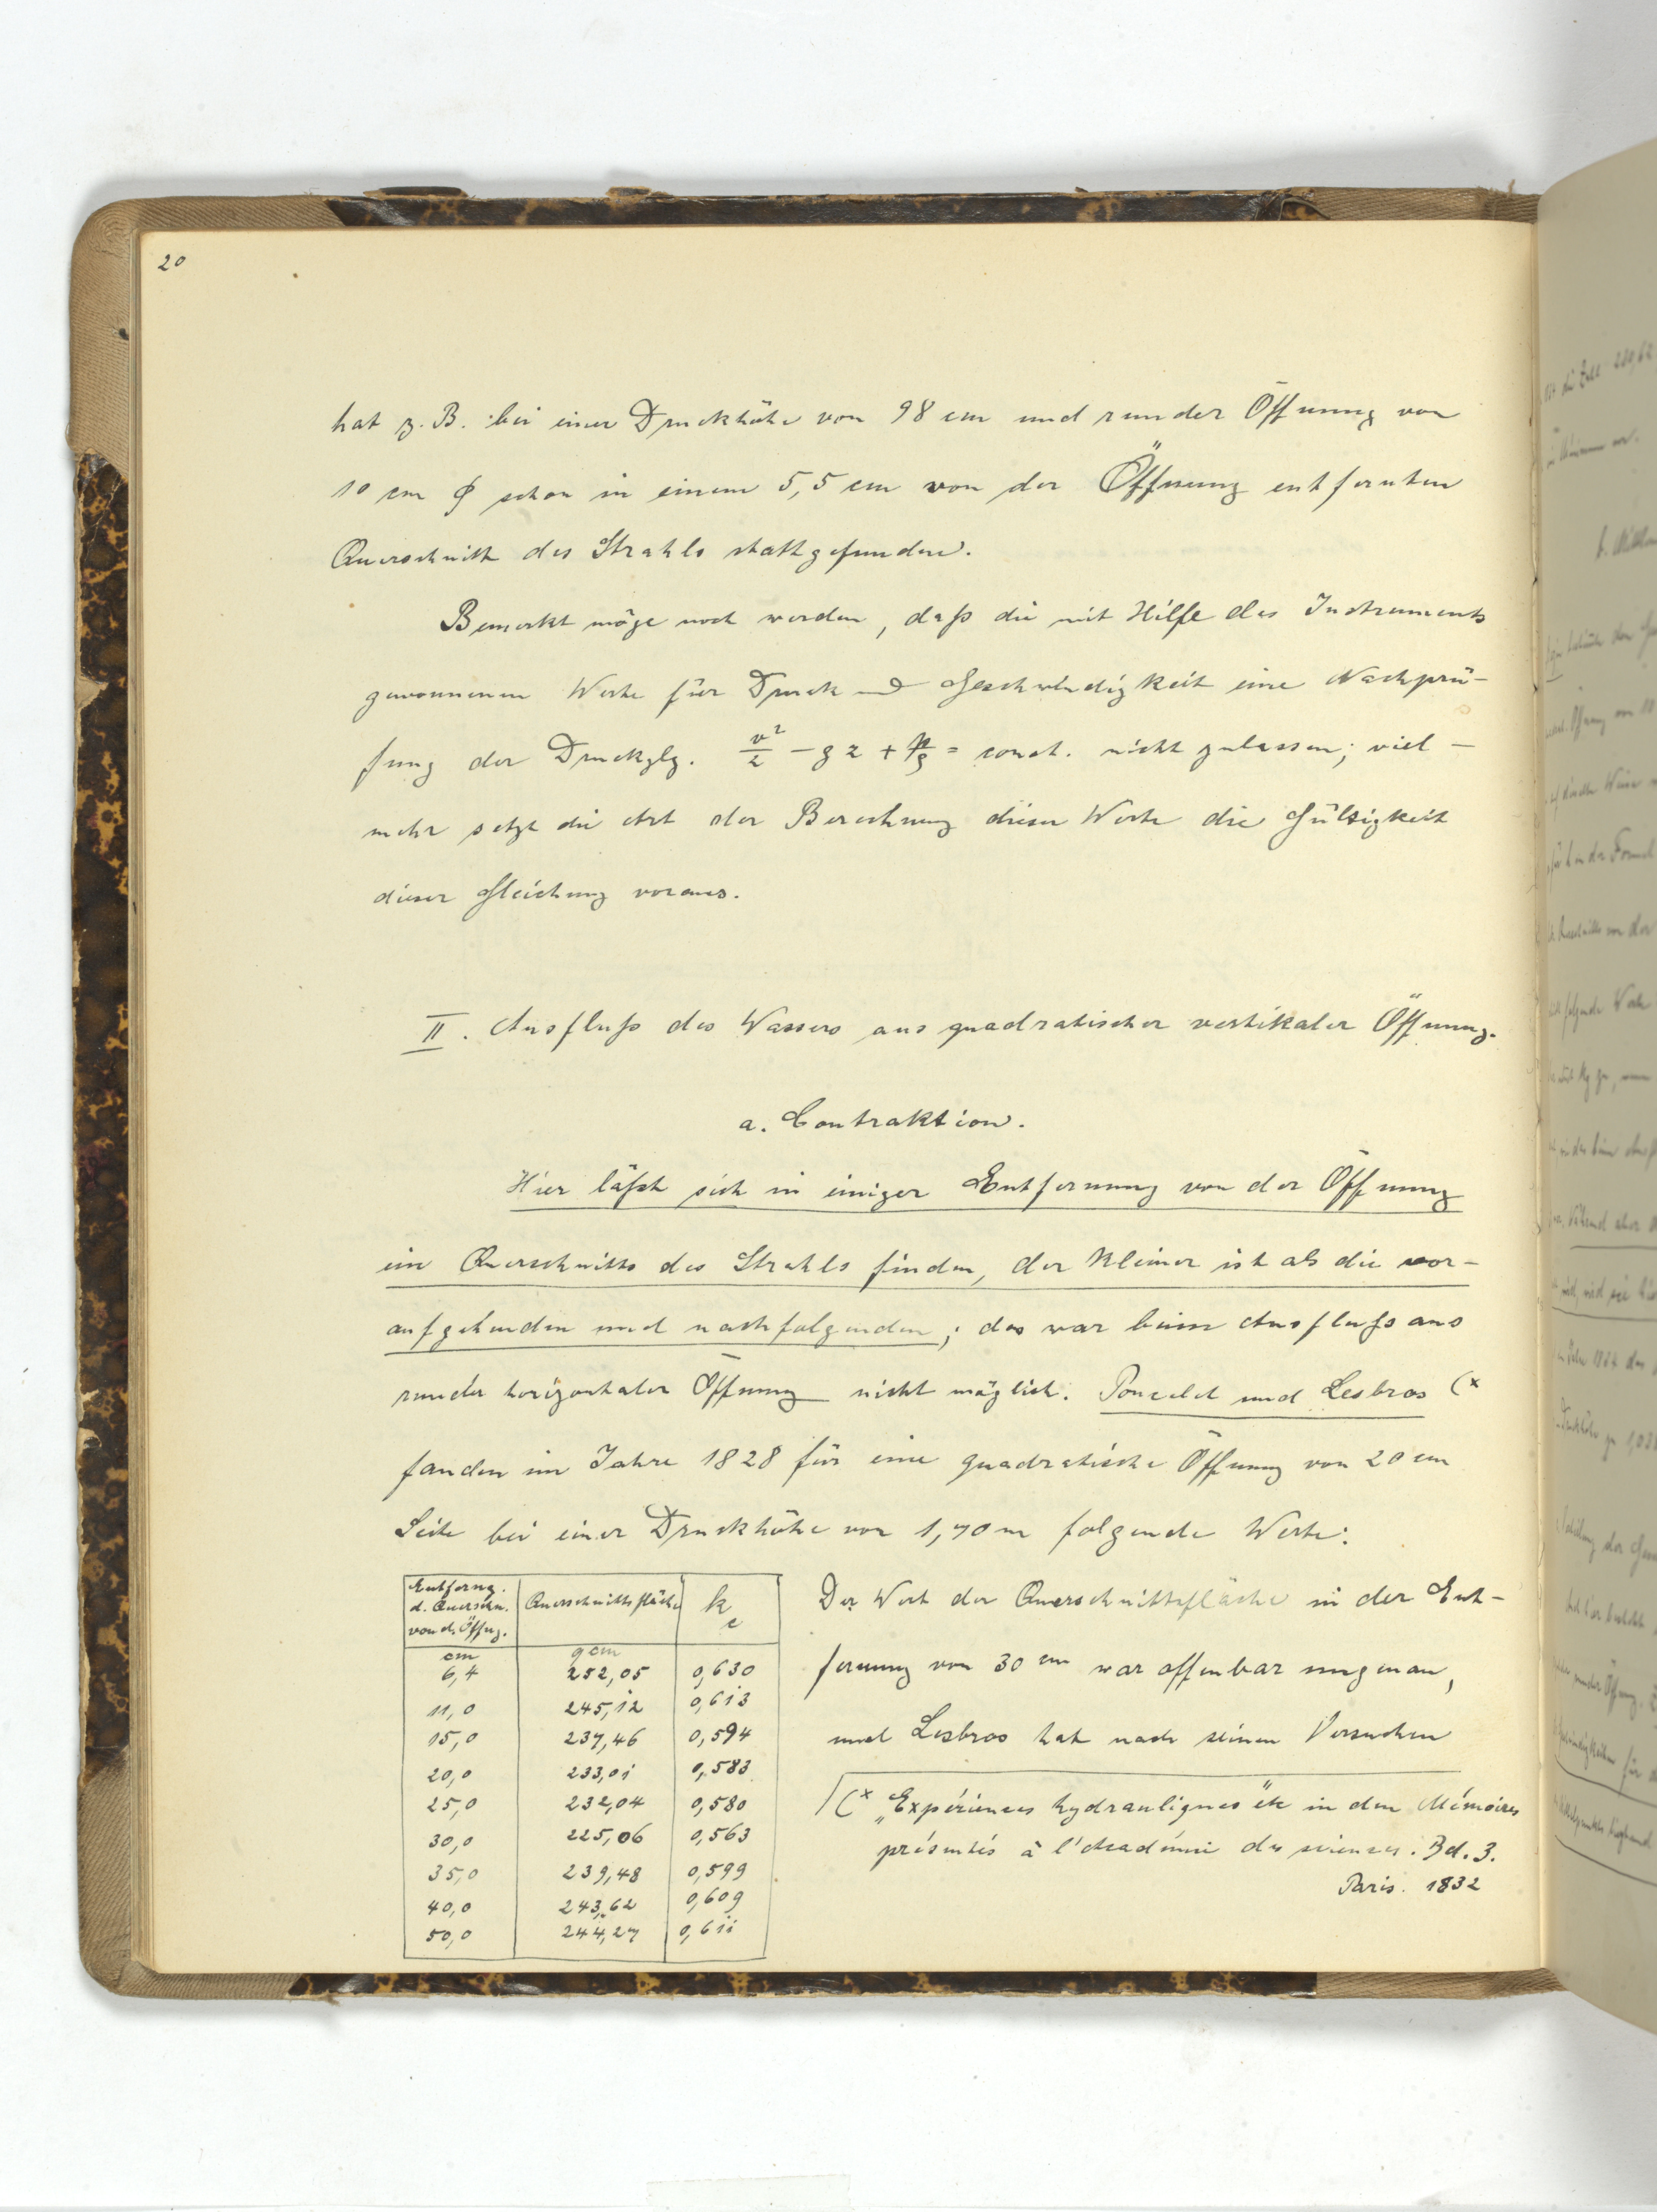 20
hat z. B. bei einer Druckhöhe von 98 cm und runder Öffnung von
10 cm ϕ schon in einem 5,5 cm von der Öffnung entfernten
Querschnitt des Strahls stattgefunden.
Bemerkt möge noch werden, daß die mit Hilfe des Instruments
gewonnenen Werte für Druck und Geschwindigkeit eine Nachprü-
fung der Druckglg. v²/2 - gz + p/ϱ = const. nicht zulassen; viel-
mehr setzt die Art der Berechnung dieser Werte die Gültigkeit
dieser Gleichung voraus.
II. Ausfluß des Wassers aus quadratischer vertikaler Öffnung.
a. Contraktion.
Hier läßt sich in einiger Entfernung von der Öffnung
ein Querschnitt des Strahls finden, der kleiner ist als die vor-
aufgehenden und nachfolgenden; das war beim Ausfluß aus
runder horizontaler Öffnung nicht möglich. Poncelet und Lesbros (x
fanden im Jahre 1828 für eine quadratische Öffnung von 20 cm
Seite bei einer Druckhöhe von 1,70 m folgende Werte:
Entferng. d. Querschn. von d. Öffng. Querschnittsfläche k c
cm qcm
6,4 252,05 0,630
11,0 245,12 0,613
15,0 237,46 0,594
20,0 233,01 0,583
25,0 232,04 0,580
30,0 225,06 0,563
35,0 239,48 0,599
40,0 243,62 0,609
50,0 244,27 0,611
Der Wert der Querschnittsfläche in der Ent-
fernung von 30 cm war offenbar ungenau,
und Lesbros hat nach seinen Versuchen
(x „Expériences hydrauliques" etc in den Mémoires
présentés à l'Académie des sciences. Bd. 3.
Paris. 1832